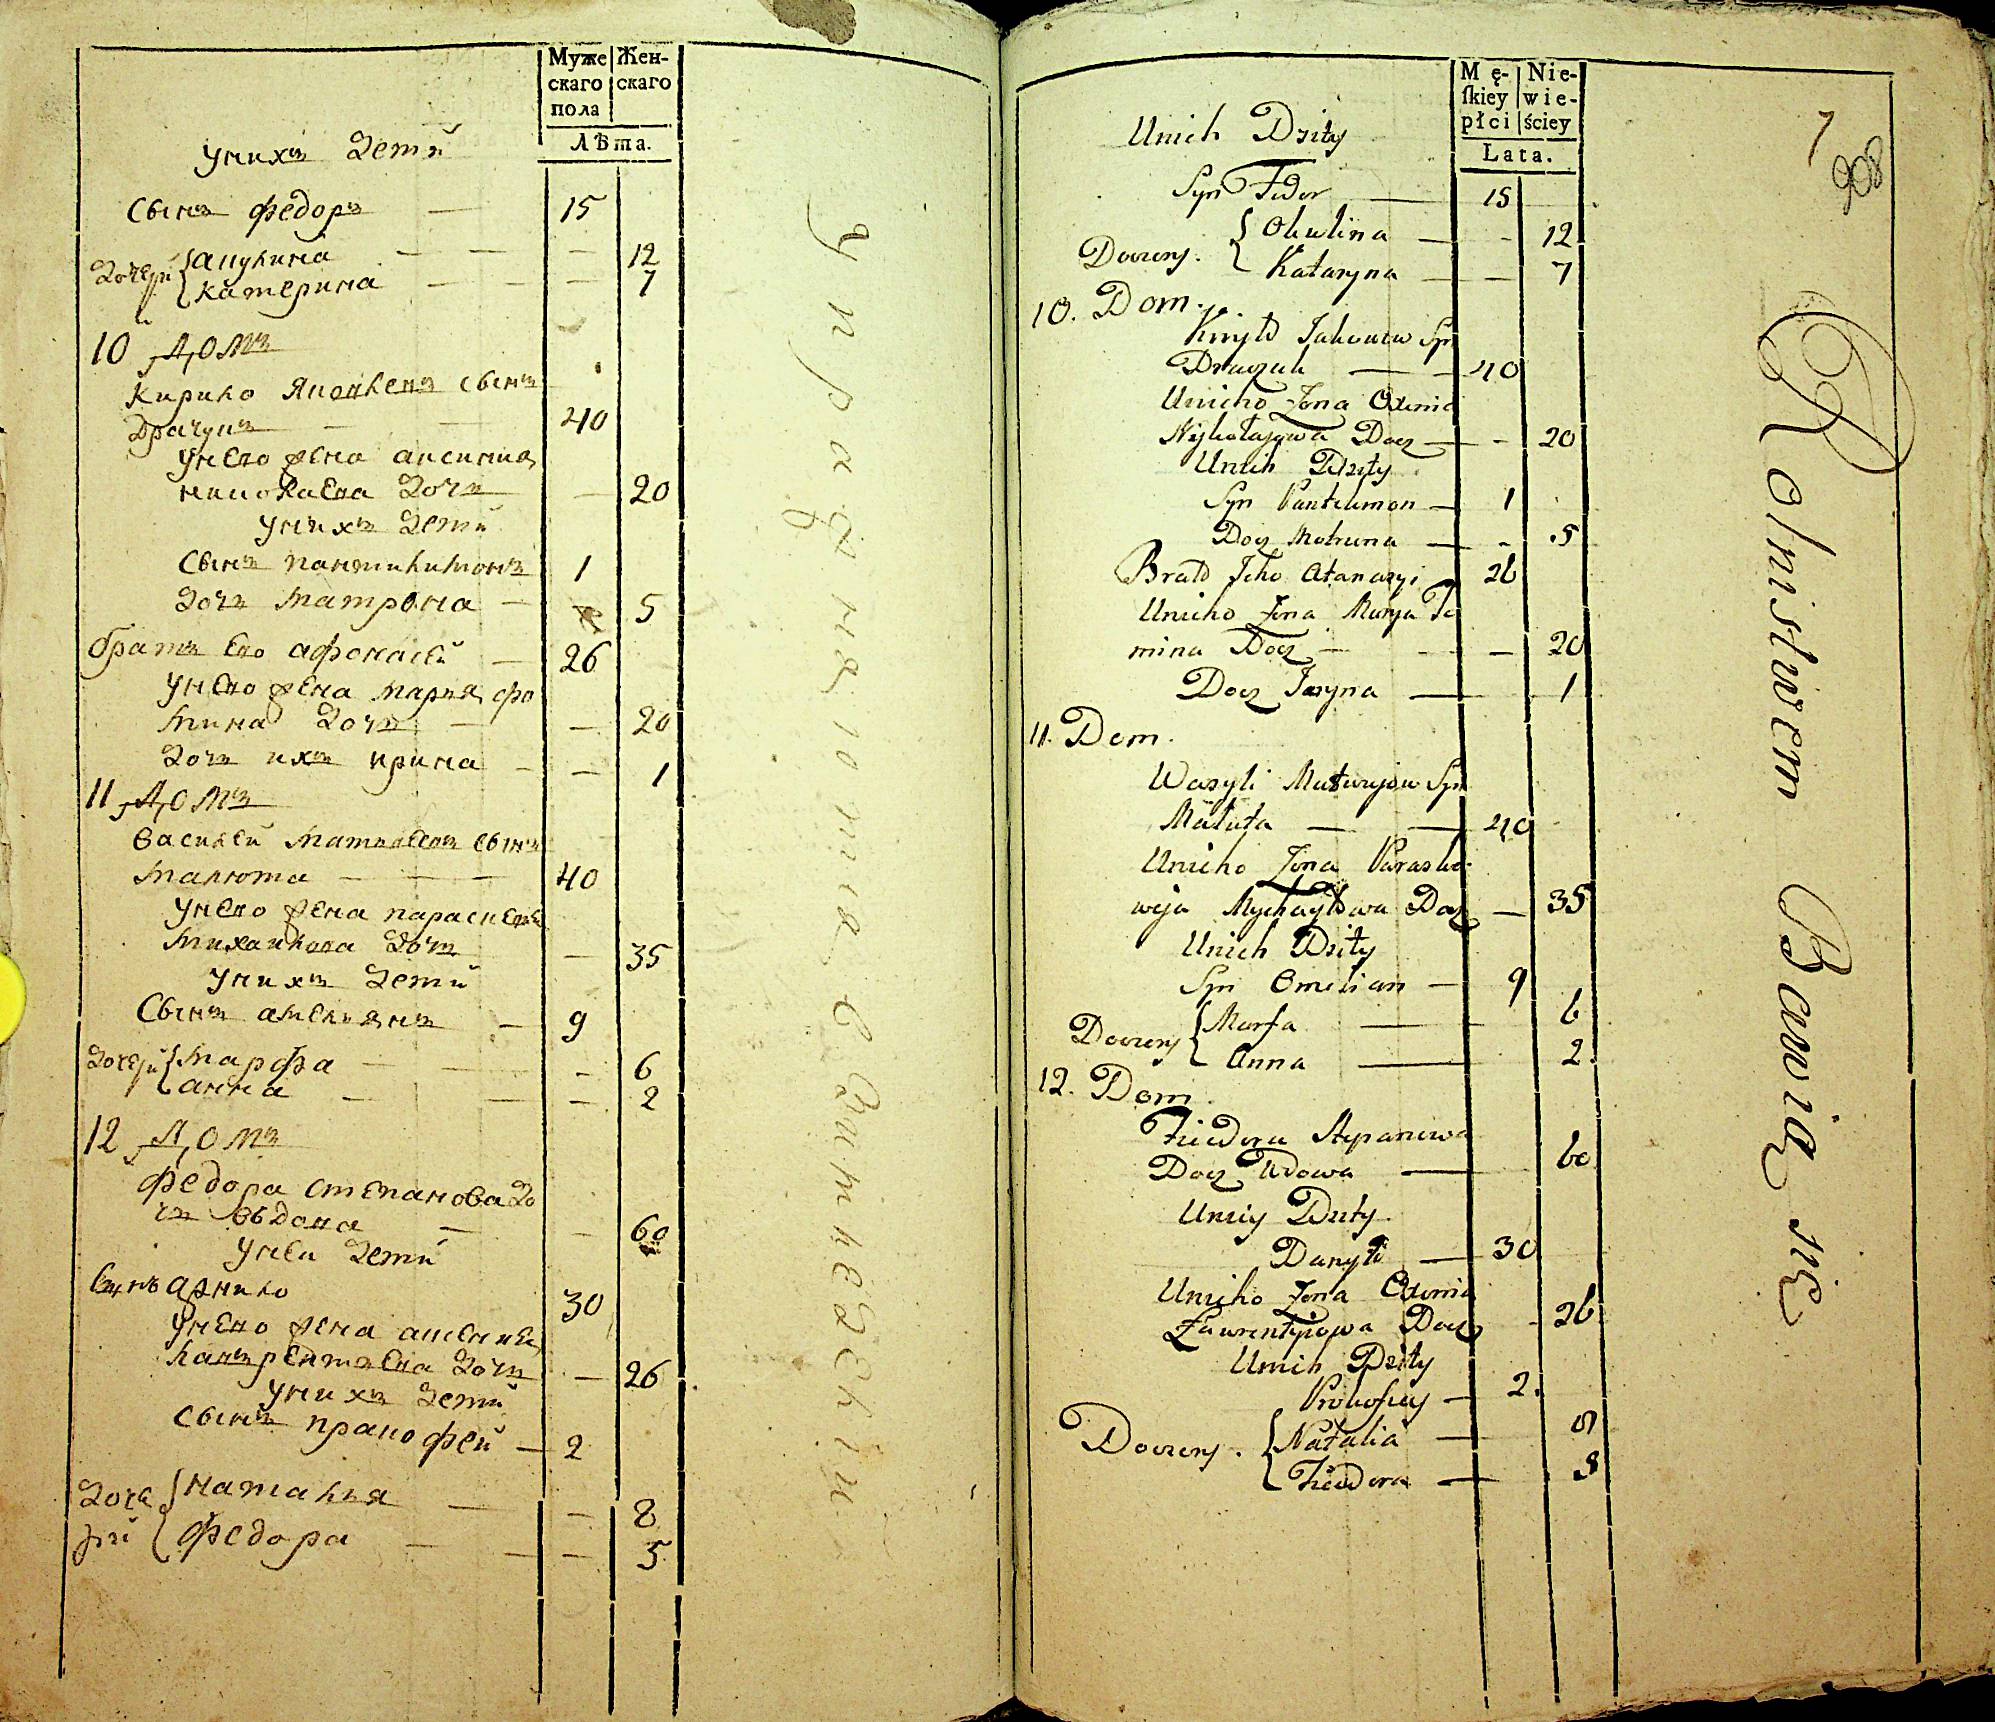 Муже
скаго
пола
Жен-
скаго
Лѣта.
Унихъ Дети
Сынъ Федоръ — 15
Дочери { Акулина — — — 12
Катерина — — — 7
10 Домъ
Кирило Яковлевъ Сынъ
Драчукъ — — 40
Унего жена аксиния
николаева Дочь — 20
Унихъ Дети
Сынъ пантилимонъ 1
Дочь Матрона — 5
братъ его афонасей — 26
Унего жена мария фо
мина Дочь — — 20
Дочь ихъ ирина — — 1
11 Домъ
Василей Матвеевъ Сынъ
Малюта — — — 40
Унего жена параскевия
Михайлова Дочь — 35
Унихъ Дети
Сынъ амельянъ — 9
Дочери { Марфа — — — 6
анна — — — 2
12 Домъ
Федора степанова до
чь вдова — — 60
Унеи Дети
Сынъ данило 30
Унего жена аксения
лаврентьева Дочь — 26
Унихъ Дети
Сынъ пракофей — 2
Доче
ри { Наталья — — 8
Федора — — — 5
упражняются в Земледелии
Mę-
ſkiey
płci
Nie-
wie-
ściey
Lata.
7
908
Unich Dzity
Syn Fedor — 15
Doczery. { Okulina — - 12
Kataryna — — 7
10. Dom.
Kiryło Jakowiw Syn
Draczuk — — 40
Unieho Żona Oxenia
Nykołajowa Docz — - 20
Unich Dzity
Syn Pantelimon — 1
Docz Motruna — - 5
Brat Jeho Atanazyi 26
Unieho Żona Marya Fo
mina Docz — - — 20
Docz Jaryna — 1
11. Dom.
Wasyli Matwujow Syn
Maluta — — 40
Unieho Żona Paraske
wija Mychayłowa Docz — 35
Unich Dzity
Syn Omelian — 9
Doczery { Marfa — 6
Anna — 2
12. Dom
Fiedora Stepanowa
Docz Wdowa — 60
Uniey Dzity
Danyło — 30
Unieho Żona Oxenia
Ławrentyiowa Docz - 26
Unich Dzity
Prokofiey — 2.
Doczery. { Natalia — 5
Fiedora — 8
Rolnistwem Bawią się